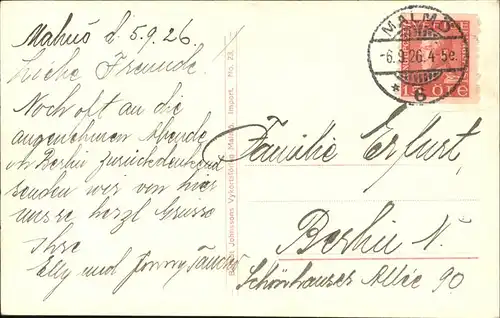 Malmö d. 5.9.26.
Liebe Freunde.
Noch oft an die
angenehmen Abende
in Berlin zurückdenkend
senden wir von hier
unsre herzl Grüsse
Ihre
Elly und
Johnssons Vykortsförlag Malmö. Import. No. 23.
MALMÖ
-6.9.26.4-5e.
* 6
15 ÖRE
Familie Erfurt,
Berlin N.
Schönhauser Allée 90